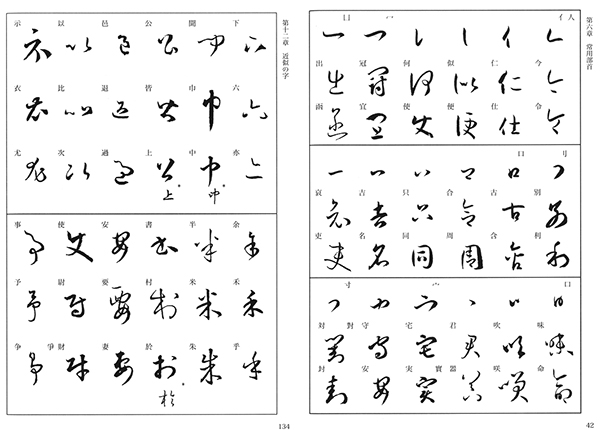 第六章 常用部首
人 亻 冖 凵
今 仁 似 何 冠 出
令 仕 便 使 宜 函
刂 口
別 古 合 只 吉 哀
利 含 周 同 名 吏
口 宀 寸
味 吹 君 宅 守 對 対
命 咲 器 實 実 安 封
42
第十二章 近似の字
下 開 公 邑 以 示
六 巾 皆 退 比 衣
亦 中 上 過 次 尤
中 上
余 半 書 安 使 事
禾 米 村 要 尉 予
乎 朱 於 妻 財 爭 争
於
134